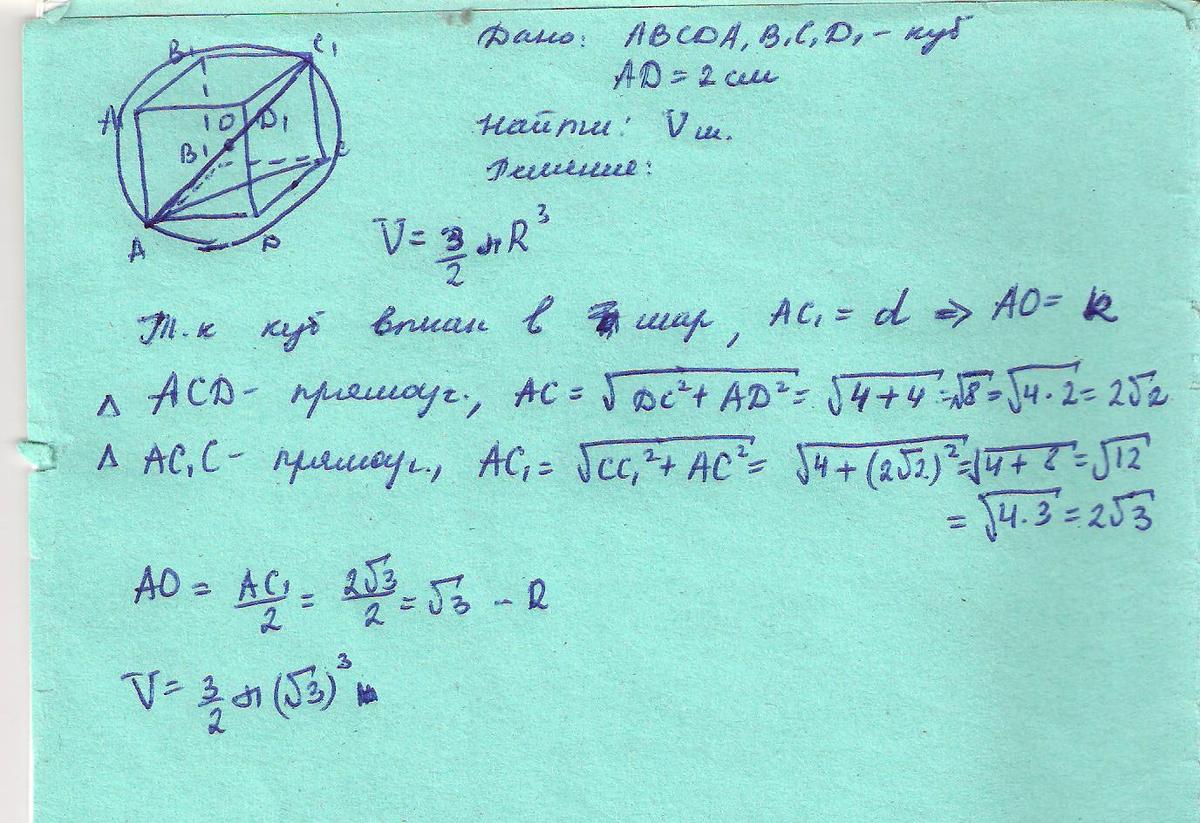 B₁ C₁
A₁ O D₁
B C
A D
Дано: ABCDA₁B₁C₁D₁ - куб
AD = 2 см
Найти: Vш.
Решение:
V = 3/2 πR³
Т.к куб вписан в шар, AC₁ = d ⇒ AO = R
Δ ACD - прямоуг., AC = √(DC² + AD²) = √(4+4) = √8 = √(4·2) = 2√2
Δ AC₁C - прямоуг., AC₁ = √(CC₁² + AC²) = √(4+(2√2)²) = √(4+8) = √12
= √(4·3) = 2√3
AO = AC₁/2 = 2√3/2 = √3 - R
V = 3/2 π(√3)³